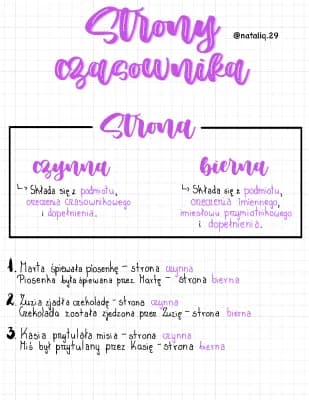 Strony
@nataliq.29
czasownika
Strona
czynna
↳ Składa się z podmiotu,
orzeczenia czasownikowego
i dopełnienia.
bierna
↳ Składa się z podmiotu,
orzeczenia imiennego,
imiesłowu przymiotnikowego
i dopełnienia.
1. Marta śpiewała piosenkę - strona czynna
Piosenka była śpiewana przez Martę - strona bierna
2. Zuzia zjadła czekoladę - strona czynna
Czekolada została zjedzona przez Zuzię - strona bierna
3. Kasia przytulała misia - strona czynna
Miś był przytulany przez Kasię - strona bierna